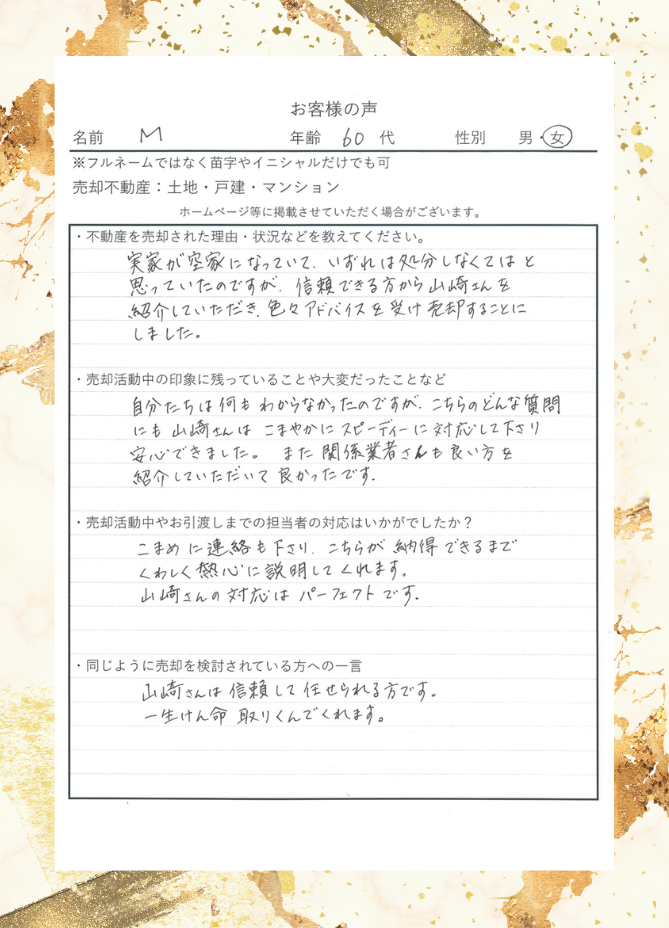 お客様の声
名前 M 年齢 60 代 性別 男・女
※フルネームではなく苗字やイニシャルだけでも可
売却不動産：土地・戸建・マンション
ホームページ等に掲載させていただく場合がございます。
・不動産を売却された理由・状況などを教えてください。
実家が空家になっていて、いずれは処分しなくてはと
思っていたのですが、信頼できる方から山崎さんを
紹介していただき、色々アドバイスを受け売却することに
しました。
・売却活動中の印象に残っていることや大変だったことなど
自分たちは何もわからなかったのですが、こちらのどんな質問
にも山崎さんは こまやかにスピーディーに対応して下さり
安心できました。 また関係業者さんも良い方を
紹介していただいて良かったです。
・売却活動中やお引渡しまでの担当者の対応はいかがでしたか？
こまめに連絡も下さり、こちらが納得できるまで
くわしく熱心に説明してくれます。
山崎さんの対応はパーフェクトです。
・同じように売却を検討されている方への一言
山崎さんは信頼して任せられる方です。
一生けん命 取りくんでくれます。